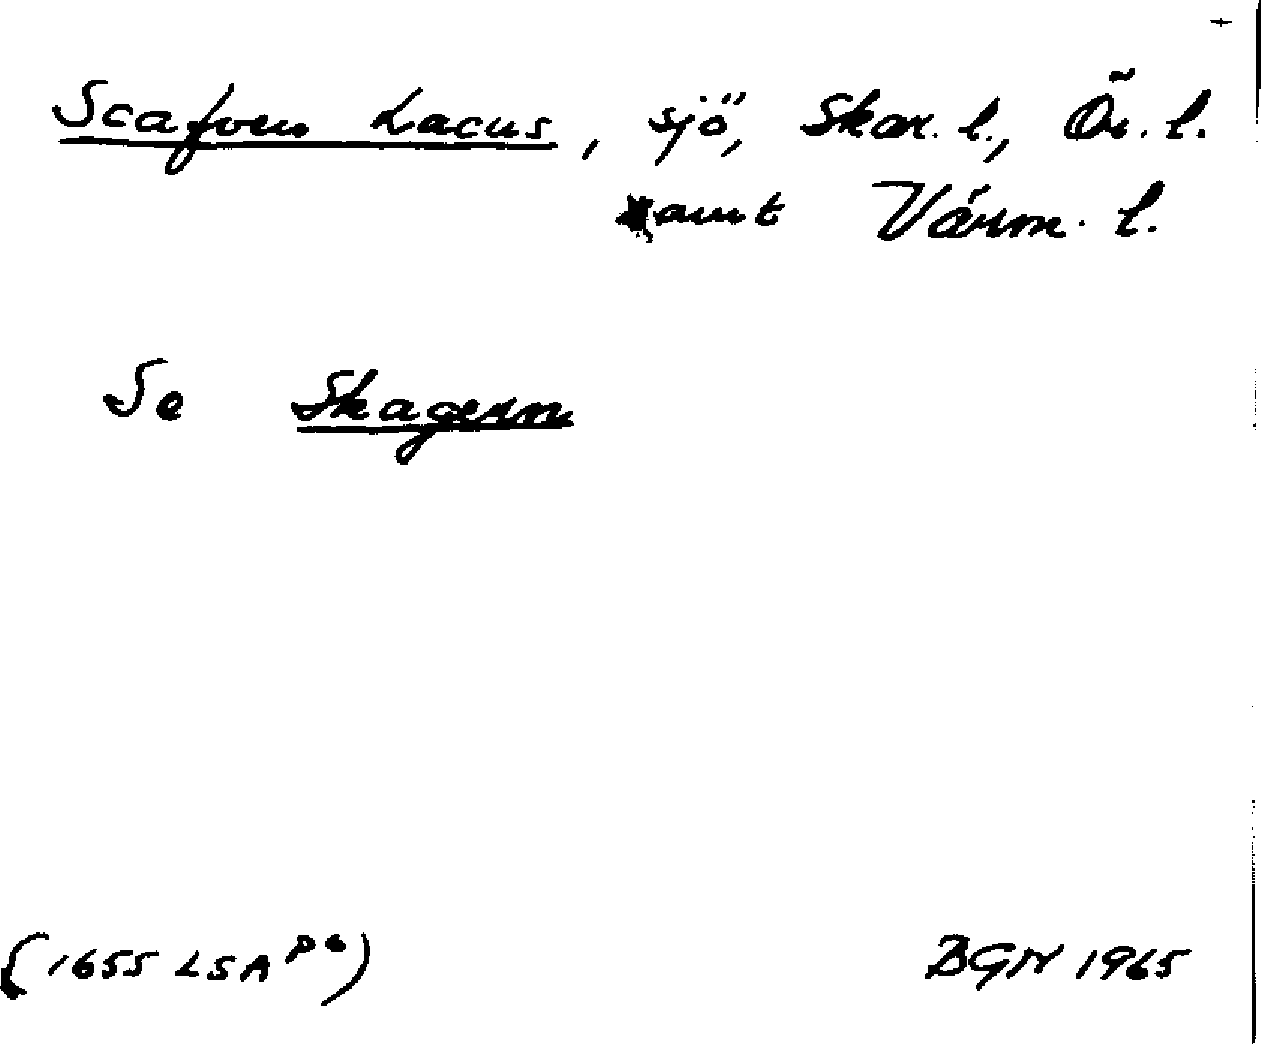 Scafven Lacus, sjö, Skar. l., Ör. l.
samt Värm. l.
Se Skagern
(1655 LSA P6)
BGN 1965